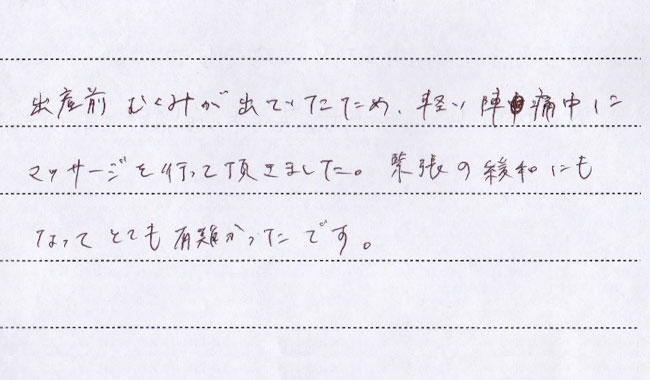 出産前 むくみが出ていたため、軽い陣痛中に
マッサージを行って頂きました。緊張の緩和にも
なってとても有難かったです。